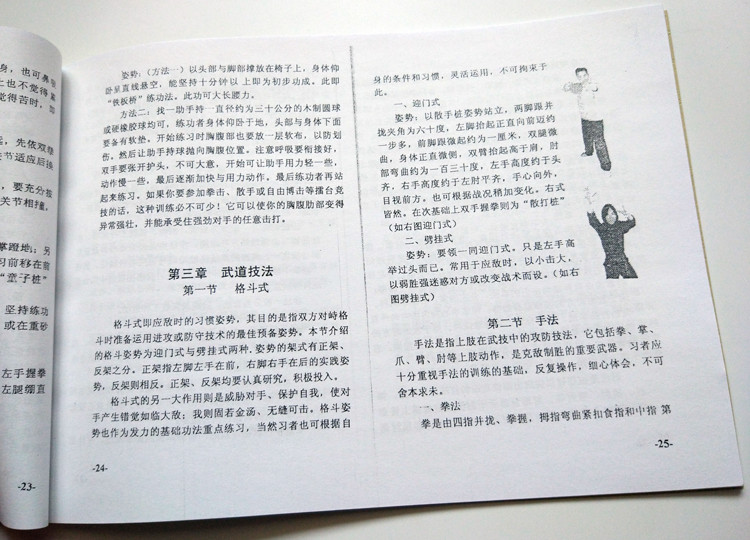 身，也可鼻
上也不觉得
觉得苦时，
先依双
节适应后
要充分
关节相撞，
掌蹬地；另
习前移在前
“童子桩”
坚持练功
或在重砂
左手握拳
左腿绷直
-23-
姿势：（方法一）以头部与脚部撑放在椅子上，身体仰
卧呈直线悬空，能坚持十分钟以上即为初步功成。此即
“铁板桥”练功法。此功可大长腰力。
方法二：找一助手持一直径约为三十公分的木制圆球
或硬橡胶球均可，练功者身体仰卧于地，头部与身体下面
要备有软垫。开始练习时胸腹部也要放一层软布，以防划
伤。然后让助手持球抛向胸腹位置。注意呼吸要衔接好，
双手要张开护头，不可大意，开始可让助手用力轻一些，
动作慢一些，最后逐渐加快与用力动作。最后练功者再站
起来练习。如果你要参加拳击、散手或自由博击等擂台竞
技的话，这种训练必不可少！它可以使你的胸腹肋部变得
异常强壮，并能承受住强劲对手的任意击打。
第三章 武道技法
第一节 格斗式
格斗式即应敌时的习惯姿势，其目的是指双方对峙格
斗时准备运用进攻或防守技术的最佳预备姿势。本节介绍
的格斗姿势为迎门式与劈挂式两种．姿势的架式有正架、
反架之分。正架指左脚左手在前，右脚右手在后的实践姿
势，反架则相反。正架、反架均要认真研究，积极投入。
格斗式的另一大作用则是威胁对手、保护自我，使对
手产生错觉如临大敌；我则固若金汤、无缝可击。格斗姿
势也作为发力的基础功法重点练习，当然习者也可根据自
-24-
身的条件和习惯，灵活运用，不可拘束于
此。
一、迎门式
姿势：以散手桩姿势站立，两脚跟并
拢夹角为六十度，左脚抬起正直向前迈约
一步多，前脚跟微起约为一厘米，双腿微
曲，身体正直微侧，双臂抬起高于肩，肘
部弯曲约为一百三十度，左手高度约于头
齐，右手高度约于左肘平齐，手心向外，
目视前方。也可根据战况稍加变化。右式
皆然。在次基础上双手握拳则为“散打桩”
（如右图迎门式）
二、劈挂式
姿势：要领一同迎门式。只是左手高
举过头而已。常用于应敌时，以小击大，
以弱胜强迷惑对方或改变战术而设。（如右
图劈挂式）
第二节 手法
手法是指上肢在武技中的攻防技法，它包括拳、掌、
爪、臂、肘等上肢动作，是克敌制胜的重要武器。习者应
十分重视手法的训练的基础，反复操作，细心体会，不可
舍本求末。
一、拳法
拳是由四指并拢、拳握，拇指弯曲紧扣食指和中指 第
-25-